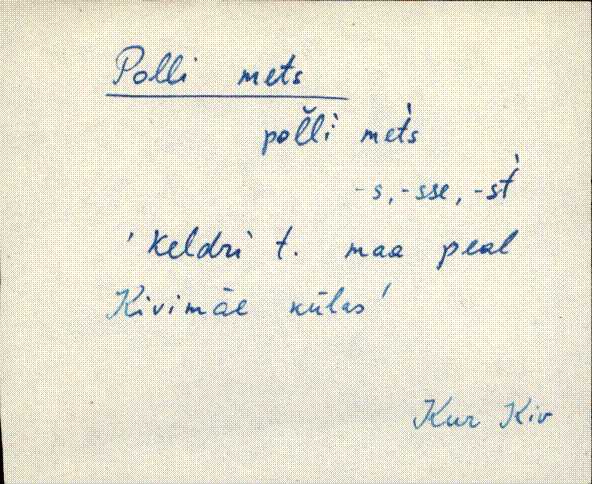 Polli mets
pol̆li` met̀s
-s, -sse, -st̀
'Keldri` t. maa peal
Kivimäe külas'
Kur Kiv